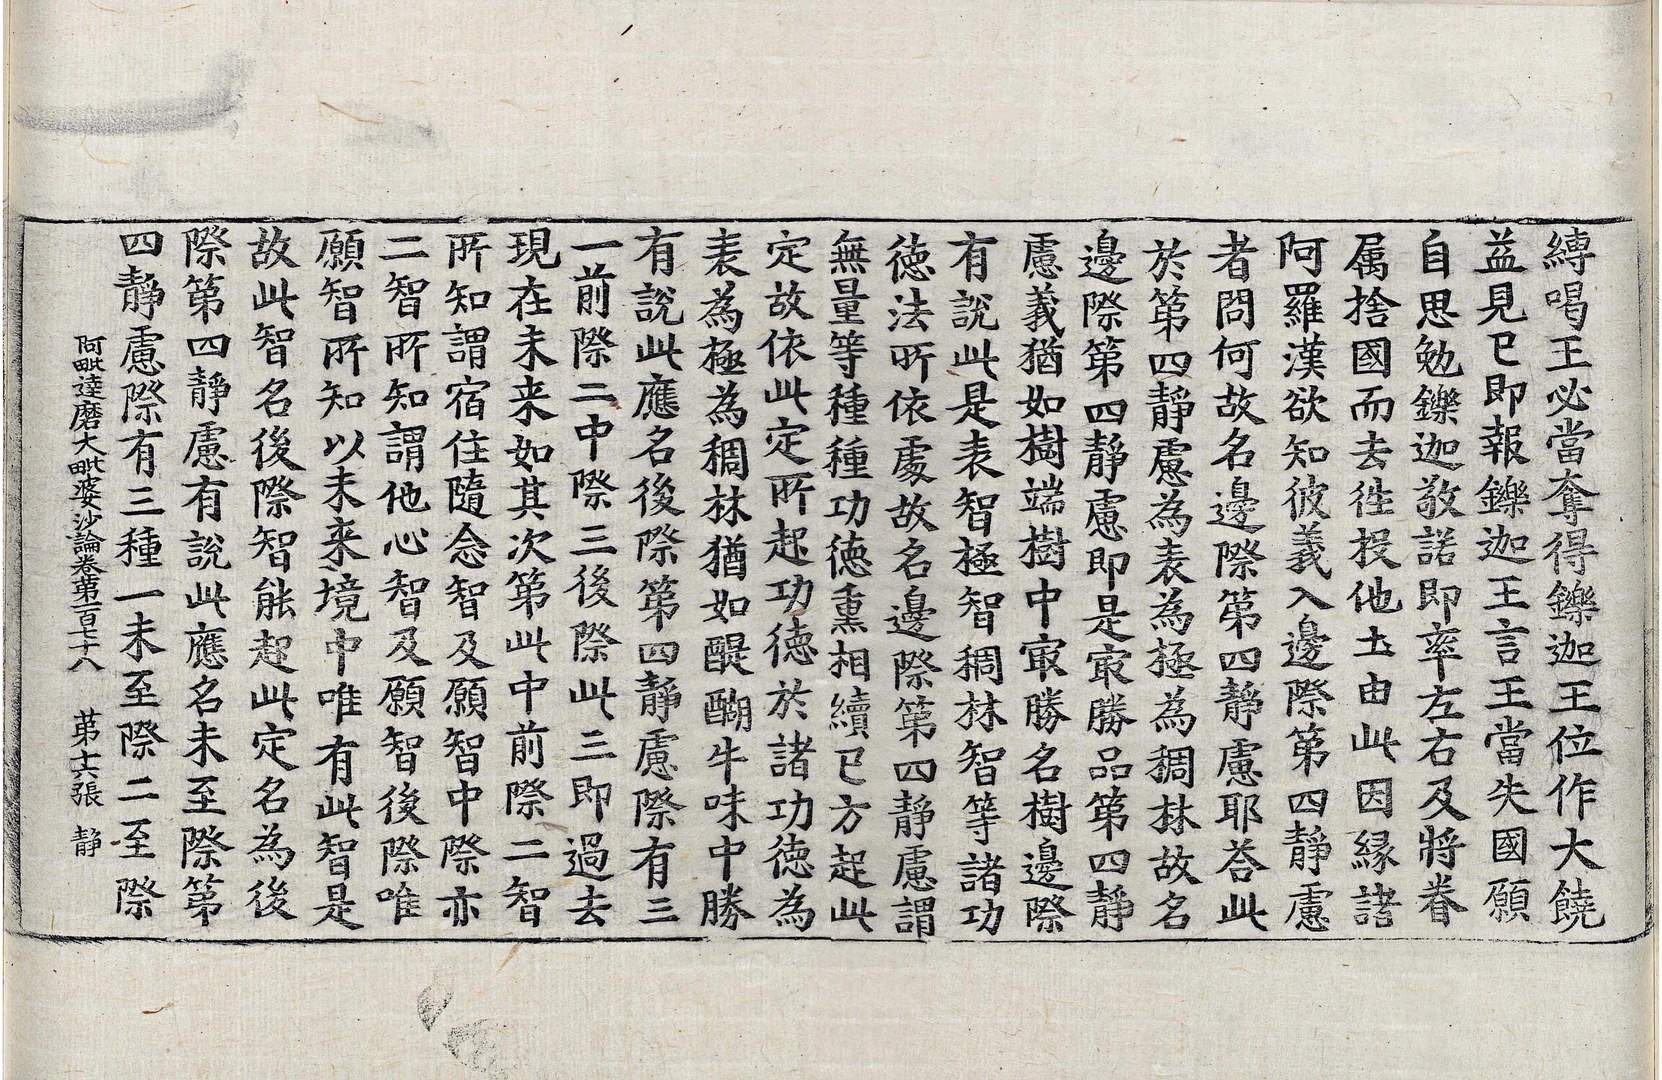 縛喝王必當奪得鑠迦王位作大饒
益見已即報鑠迦王言王當失國願
自思勉鑠迦敬諾即率左右及將眷
属捨國而去徃投他圡由此因縁諸
阿羅漢欲知彼義入邊際第四靜慮
者問何故名邊際第四靜慮耶荅此
於第四靜慮為表為極為稠林故名
邊際第四靜慮即是㝡勝品第四靜
慮義猶如樹端樹中㝡勝名樹邊際
有說此是表智極智稠林智等諸功
徳法所依處故名邊際第四靜慮謂
無量等種種功徳熏相續已方起此
定故依此定所起功徳於諸功徳為
表為極為稠林猶如醍醐牛味中勝
有說此應名後際第四靜慮際有三
一前際二中際三後際此三即過去
現在未来如其次第此中前際二智
所知謂宿住隨念智及願智中際亦
二智所知謂他心智及願智後際唯
願智所知以未来境中唯有此智是
故此智名後際智能起此定名為後
際第四靜慮有說此應名未至際第
四靜慮際有三種一未至際二至際
阿毗達磨大毗婆沙論卷第一百七十八 第十六張 靜